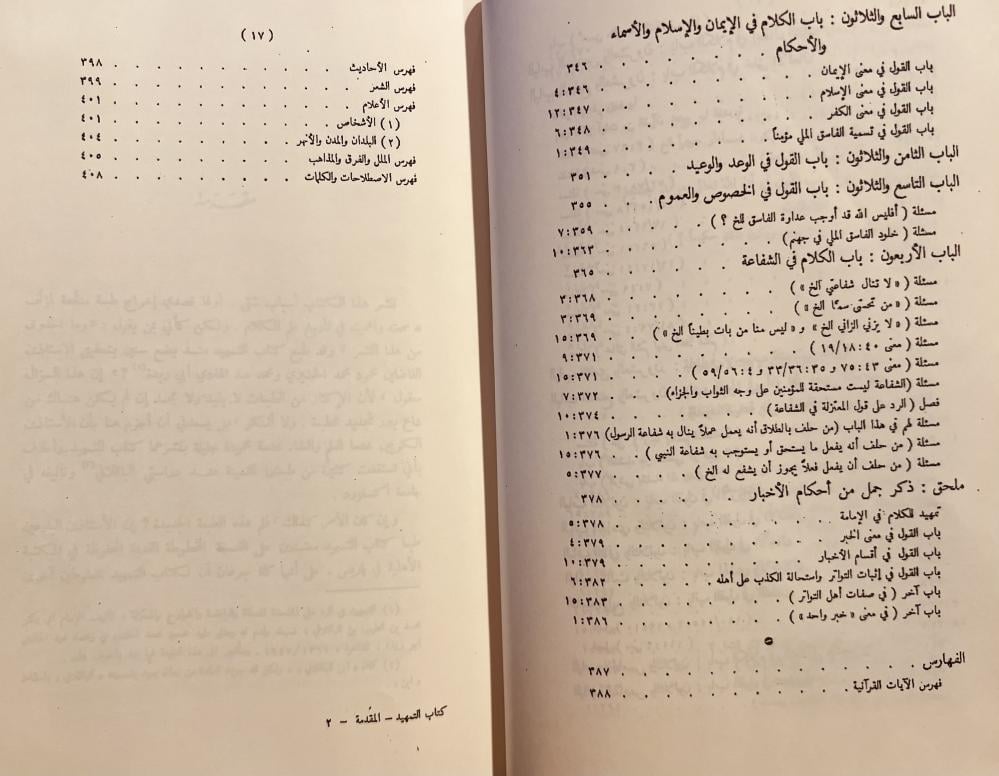 الباب السابع والثلاثون : باب الكلام في الإيمان والإسلام والأسماء
والأحكام . . . . . . . ٣٤٦
باب القول في معنى الإيمان . . . . . . . ٤:٣٤٦
باب القول في معنى الإسلام . . . . . . . ١٢:٣٤٧
باب القول في معنى الكفر . . . . . . . ٦:٣٤٨
باب القول في تسمية الفاسق الملي مؤمناً . . . . . . . ١:٣٤٩
الباب الثامن والثلاثون : باب القول في الوعد والوعيد . . . . ٣٥١
الباب التاسع والثلاثون : باب القول في الخصوص والعموم . . . ٣٥٥
مسئلة ( أفليس الله قد أوجب عداوة الفاسق للخ ؟ ) . . . . . ٧:٣٥٩
مسئلة ( خلود الفاسق الملي في جهنم) . . . . . . . ١٠:٣٦٣
الباب الأربعون : باب الكلام في الشفاعة . . . . . . ٣٦٥
مسئلة ( « لا تنال شفاعتي الخ » ) . . . . . . . ٣:٣٦٨
مسئلة ( « من تحسّى سمّاً الخ » ) . . . . . . . ٣:٣٦٩
مسئلة ( « لا يزني الزاني الخ » و « ليس منا من بات بطيناً الخ » ) ١٥:٣٦٩
مسئلة ( معنى ١٩/١٨:٤٠ ) . . . . . . . ٩:٣٧١
مسئلة ( معنى ٧٥:٤٣ و ٣٣/٣٦:٣٥ و ٥٩/٥٦:٤ ) . . . . . ١٥:٣٧١
مسئلة (الشفاعة ليست مستحقة للمؤمنين على وجه الثواب والجزاء) . . ٧:٣٧٢
فصل ( الرد على قول المعتزلة في الشفاعة ) . . . . . . ١٠:٣٧٤
مسئلة لهم في هذا الباب (من حلف بالطلاق أنه يعمل عملاً ينال به شفاعة الرسول) ١:٣٧٦
مسئلة ( من حلف أنه يفعل ما يستحق أو يستوجب به شفاعة النبي ) . . ١٥:٣٧٦
مسئلة ( من حلف أن يفعل فعلاً يجوز أن يشفع له الخ ) . . . . ٥:٣٧٧
ملحق : ذكر جمل من أحكام الأخبار . . . . . ٣٧٨
تمهيد للكلام في الإمامة . . . . . . . ٥:٣٧٨
باب القول في معنى الخبر . . . . . . . ٤:٣٧٩
باب القول في أقسام الأخبار . . . . . . . ١٠:٣٧٩
باب القول في إثبات التواتر واستحالة الكذب على أهله . . . . ٦:٣٨٢
باب آخر ( في صفات أهل التواتر ) . . . . . . . ١٥:٣٨٣
باب آخر ( في معنى « خبر واحد » ) . . . . . . . ١:٣٨٦
الفهارس . . . . . . . ٣٨٧
فهرس الآيات القرآنية . . . . . . . ٣٨٨
( ١٧ )
فهرس الأحاديث . . . . . . . ٣٩٨
فهرس الشعر . . . . . . . ٣٩٩
فهرس الأعلام . . . . . . . ٤٠١
(١) الأشخاص . . . . . . . ٤٠١
(٢) البلدان والمدن والأنهر . . . . . . . ٤٠٤
فهرس الملل والفرق والمذاهب . . . . . . . ٤٠٥
فهرس الاصطلاحات والكلمات . . . . . . . ٤٠٨
كتاب التمهيد – المقدمة – ٢